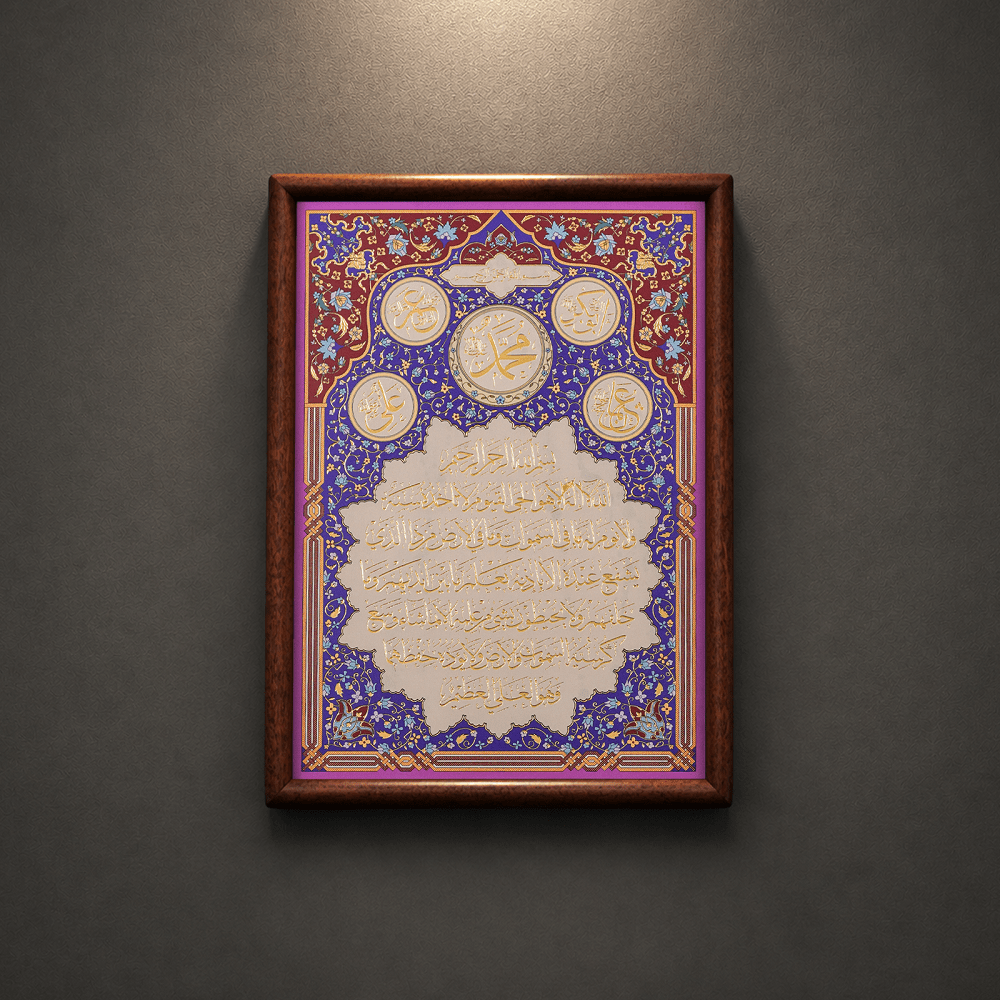 ابوبكر
محمد
عمر
عثمان
علي
بسم الله الرحمن الرحيم
الله لا اله الا هو الحي القيوم لا تأخذه سنة
ولا نوم له ما في السموات وما في الارض من ذا الذي
يشفع عنده الا باذنه يعلم ما بين ايديهم وما
خلفهم ولا يحيطون بشيء من علمه الا بما شاء وسع
كرسيه السموات والارض ولا يؤده حفظهما
وهو العلي العظيم